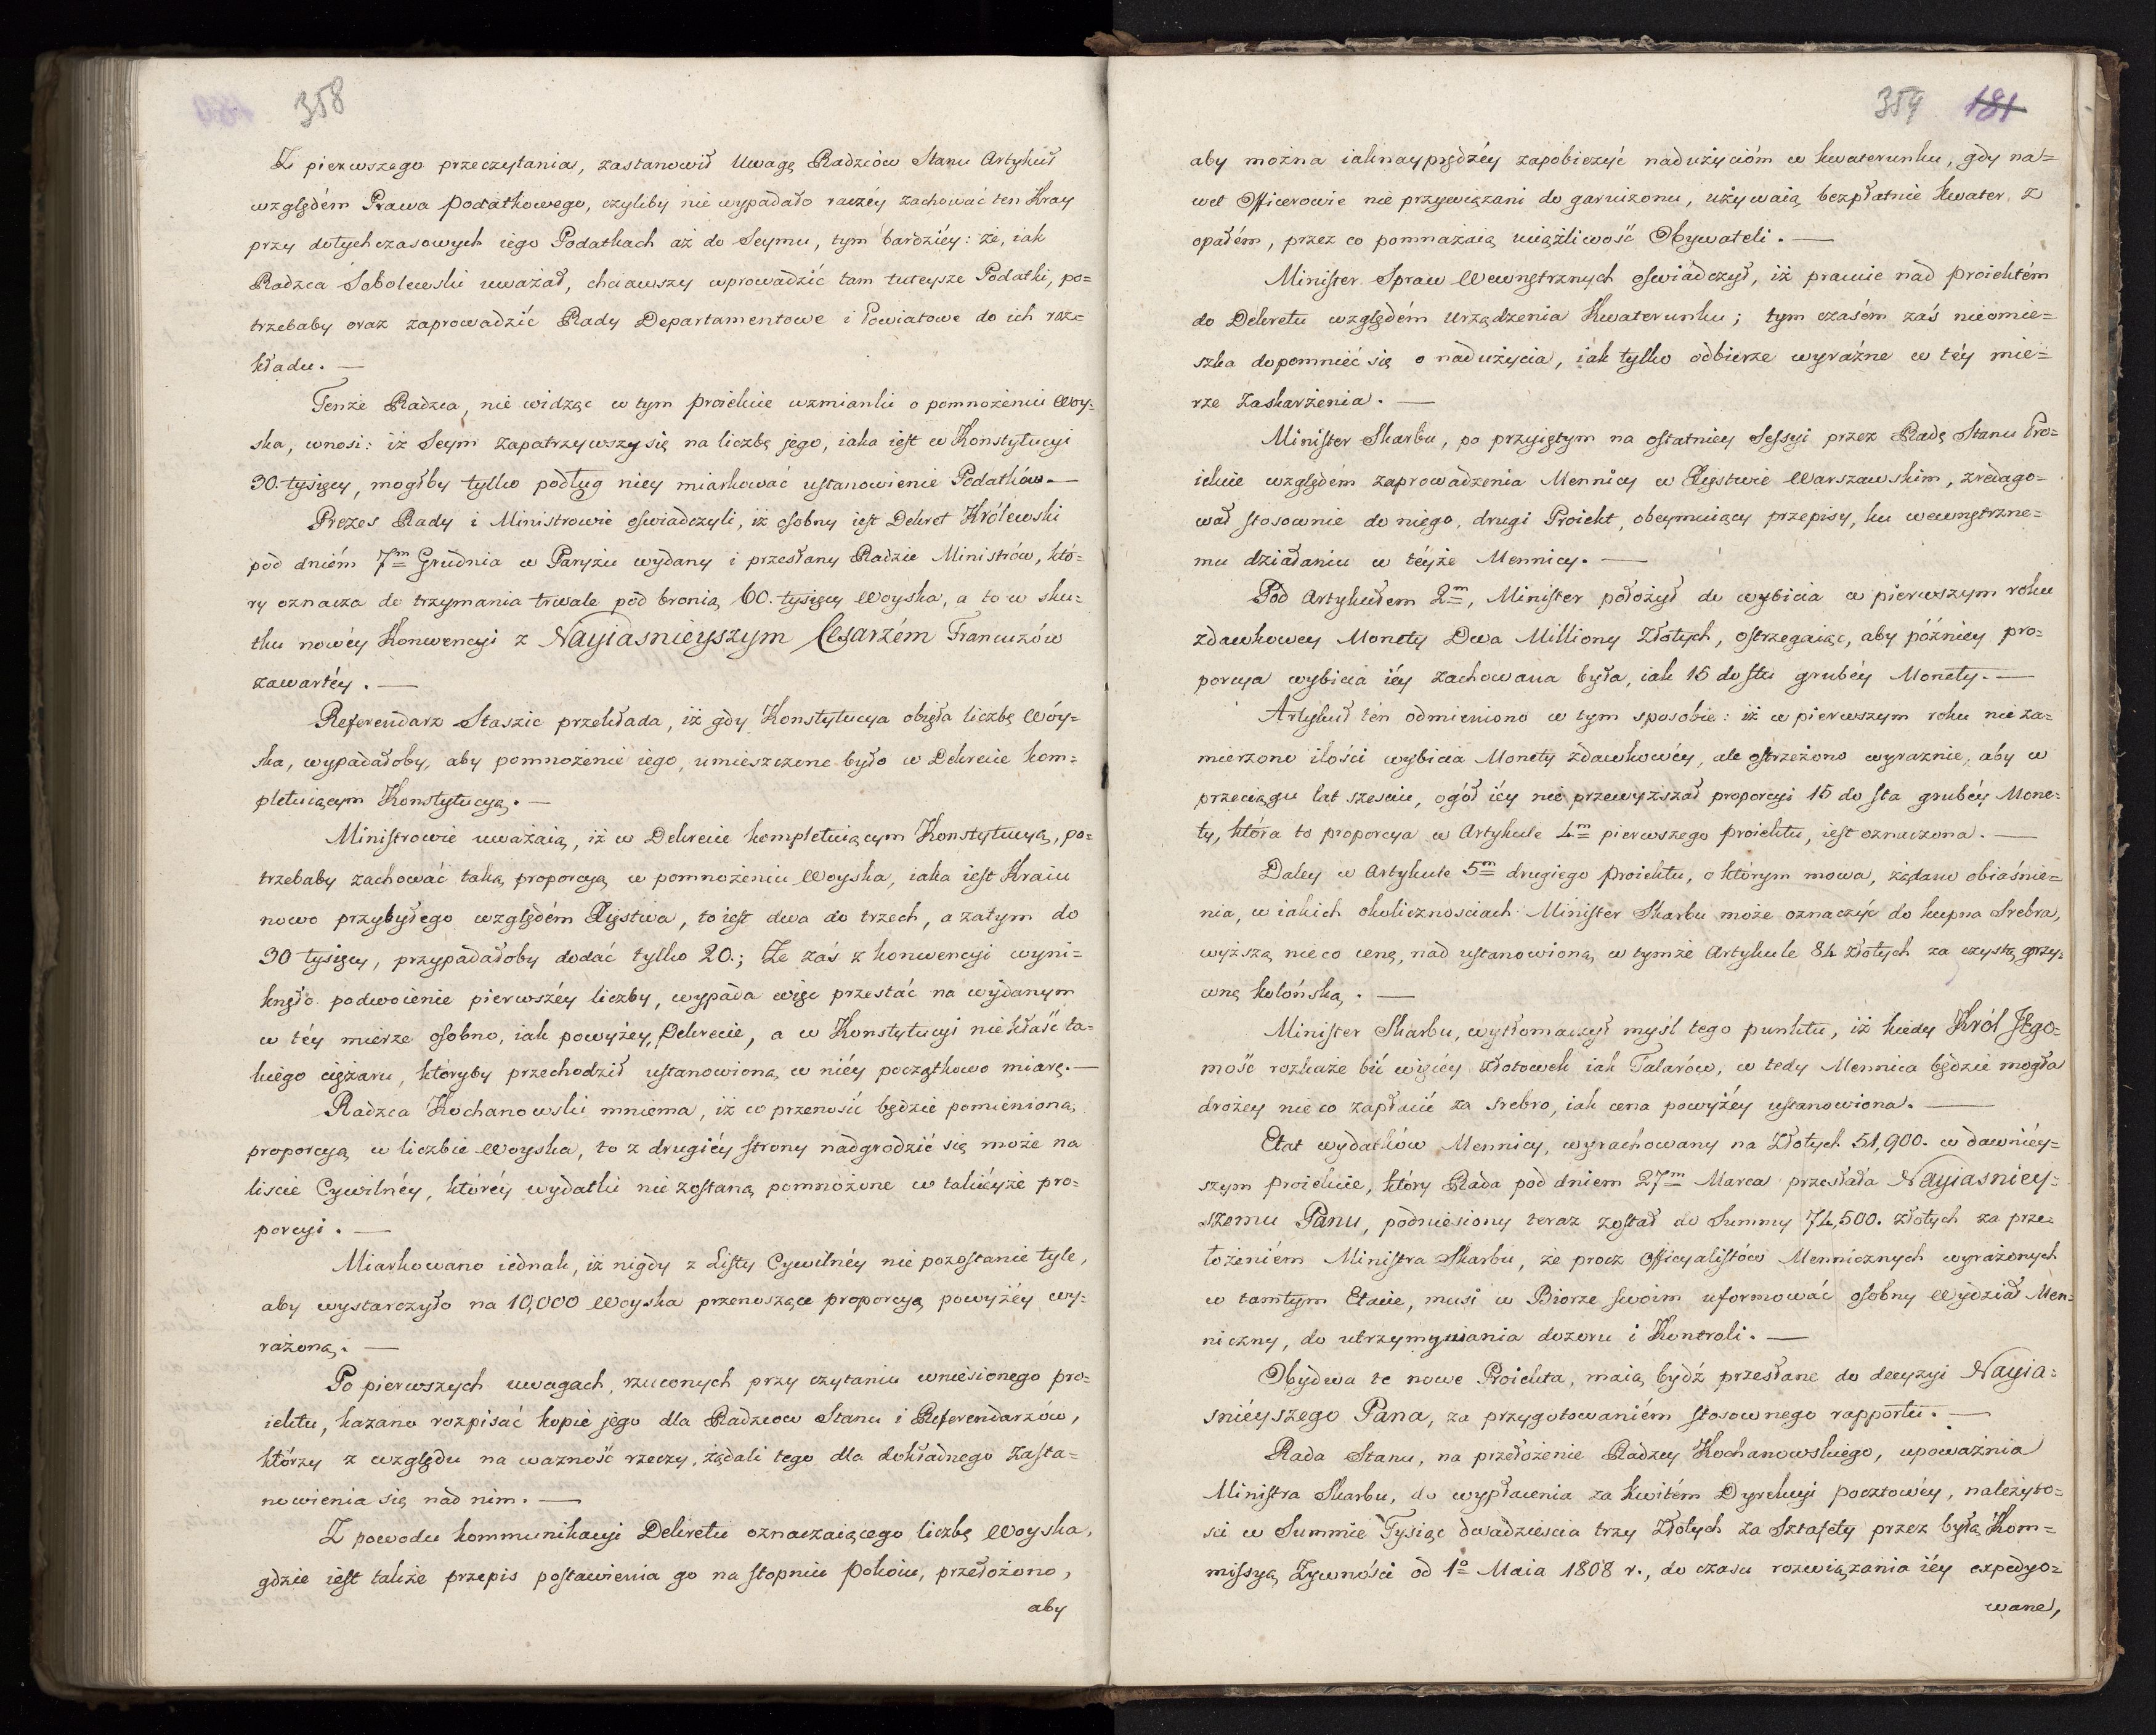 358
Z pierwszego przeczytania, zastanowił Uwagę Radzców Stanu Artykuł
względém Prawa podatkowego, czyliby nie wypadało raczéy zachować ten Kray
przy dotychczasowych iego Podatkach aż do Seymu, tym bardziey: że, iak
Radzca Sobolewski uważał, chciawszy wprowadzić tam tuteysze Podatki, po=
trzebaby oraz zaprowadzić Rady Departamentowe i Powiatowe do ich roz=
kładu. —
Tenże Radzca, nie widząc w tym proiekcie wzmianki o pomnożeniu Woy=
ska, wnosi: iż Seym zapatrzywszy się na liczbę jego, iaka iest w Konstytucyi
30. tysięcy, mógłby tylko podług niey miarkować ustanowienie Podatków. —
Prezes Rady i Ministrowie oświadczyli, iż osobny iest Dekret Królewski
pod dniém 7m Grudnia w Paryżu wydany i przesłany Radzie Ministrów, któ=
ry oznacza do trzymania trwale pod bronią 60. tysięcy Woyska, a to w sku=
tku nowéy Konwencyi z Nayiasnieyszym Cesarzém Francuzów
zawartéy. —
Referendarz Staszic przekłada, iż gdy Konstytucya obięła liczbę Wóy=
ska, wypadałoby, aby pomnożenie iego, umieszczone było w Dekrecie kom=
pletuiącym Konstytucyą. —
Ministrowie uważaią, iż w Dekrecie kompletuiącym Konstytucyą, po=
trzebaby zachować taką proporcyą w pomnożeniu Woyska, iaka iest Kraiu
nowo przybyłego względém Xięstwa, to iest dwa do trzech, a zatym do
30 tysięcy, przypadałoby dodać tylko 20.; Że zaś z konwencyi wyni=
knęło podwoienie pierwszéy liczby, wypada więc przestać na wydanym
w téy mierze osobno, iak powyżey, Dekrecie, a w Konstytucyi nie kłaść ta=
kiego ciężaru, któryby przechodził ustanowioną w niéy początkowo miarę. —
Radzca Kochanowski mniema, iż co przenosić będzie pomienioną
proporcyą w liczbie Woyska, to z drugiéy strony nadgrodzić się może na
liscie Cywilnéy, któréy wydatki nie zostaną pomnożone w takiéyże pro=
porcyi. —
Miarkowano iednak, iż nigdy z Listy Cywilnéy nie pozostanie tyle,
aby wystarczyło na 10,000 Woyska przenoszące proporcyą powyżéy wy=
rażoną. —
Po pierwszych uwagach, rzuconych przy czytaniu wniesionego pro=
iektu, kazano rozpisać kopie jego dla Radzców Stanu i Referendarzów,
którzy z względu na ważność rzeczy, żądali tego dla dokładnego Zasta=
nowienia się nad nim. —
Z powodu kommunikacyi Dekretu oznaczaiącego liczbę Woyska,
gdzie iest także przepis postawienia go na stopniu pokoiu, przełożono,
aby
359 181
aby można iaknayprędzéy zapobieżyć nadużycióm w kwaterunku, gdy na=
wet Officerowie nie przywiązani do garnizonu, używaią bezpłatnie Kwater z
opałém, przez co pomnażaią uciążliwość Obywateli. —
Minister Spraw Wewnętrznych oświadczył, iż pracuie nad proiektém
do Dekretu względém Urządzenia Kwaterunku; tym czasém zaś nieomie=
szka dopomnieć się o nadużycia, iak tylko odbierze wyraźne w téy mie=
rze Zaskarżenia. —
Minister Skarbu, po przyiętym na ostatniey Sessyi przez Radę Stanu Pro=
iekcie względém zaprowadzenia Mennicy w Xięstwie Warszawskim, zredago=
wał stosownie do niego, drugi Proiekt, obeymuiący przepisy, ku wewnętrzne=
mu działaniu w téyże Mennicy. —
Pod Artykułem 2m, Minister położył do wybicia w pierwszym roku
zdawkowey Monety Dwa Milliony Złotych, ostrzegaiąc, aby późniey pro=
porcya wybicia iéy zachowana była, iak 15 do stu grubéy Monety. —
Artykuł tén odmieniono w tym sposobie: iż w pierwszym roku nie za=
mierzono ilości wybicia Monety zdawkowéy, ale ostrzeżono wyraznie, aby w
przeciągu lat szesciu, ogół iéy nie przewyższał proporcyi 15 do sta grubéy Mone=
ty, która to proporcya w Artykule 4m pierwszego proiektu, iest oznaczona. —
Daley w Artykule 5m drugiego proiektu, o którym mowa, żądano obiaśnie=
nia, w iakich okolicznosciach Minister Skarbu może oznaczyć do kupna Srebra,
wyższą nieco cenę, nad ustanowioną w tymże Artykule 84 złotych za czystą grzy=
wnę kolońską. —
Minister Skarbu, wytłomaczył myśl tego punktu, iż kiedy Król JEgo=
mość rozkaże bić więcéy złotowek iak Talarów, w tedy Mennica będzie mogła
drożey nieco zapłacić za srebro, iak cena powyżéy ustanowiona. —
Etat wydatków Mennicy, wyrachowany na Złotych 51,900. w dawniéy=
szym proiekcie, który Rada pod dniem 27m Marca przesłała Nayiasniey=
szemu Panu, podniesiony teraz został do Summy 74,500. złotych za prze=
łożeniém Ministra Skarbu, że procz Officyalistów Mennicznych wyrażonych
w tamtym Etacie, musi w Biorze swoim uformować osobny Wydział Men=
niczny, do utrzymywania dozoru i Kontroli. —
Obydwa te nowe Proiekta, maią bydź przesłane do decyzyi Nayia=
śniéyszego Pana, za przygotowaniém stosownego rapportu. —
Rada Stanu, na przełożenie Radzcy Kochanowskiego, upoważnia
Ministra Skarbu, do wypłacenia za kwitém Dyrekcyi pocztowéy, należyto=
sci w Summie Tysiąc dwadziescia trzy Złotych za Sztafety przez byłą Kom=
missyą Żywności od 1o Maia 1808 r., do czasu rozwiązania iéy expedyo=
wane,